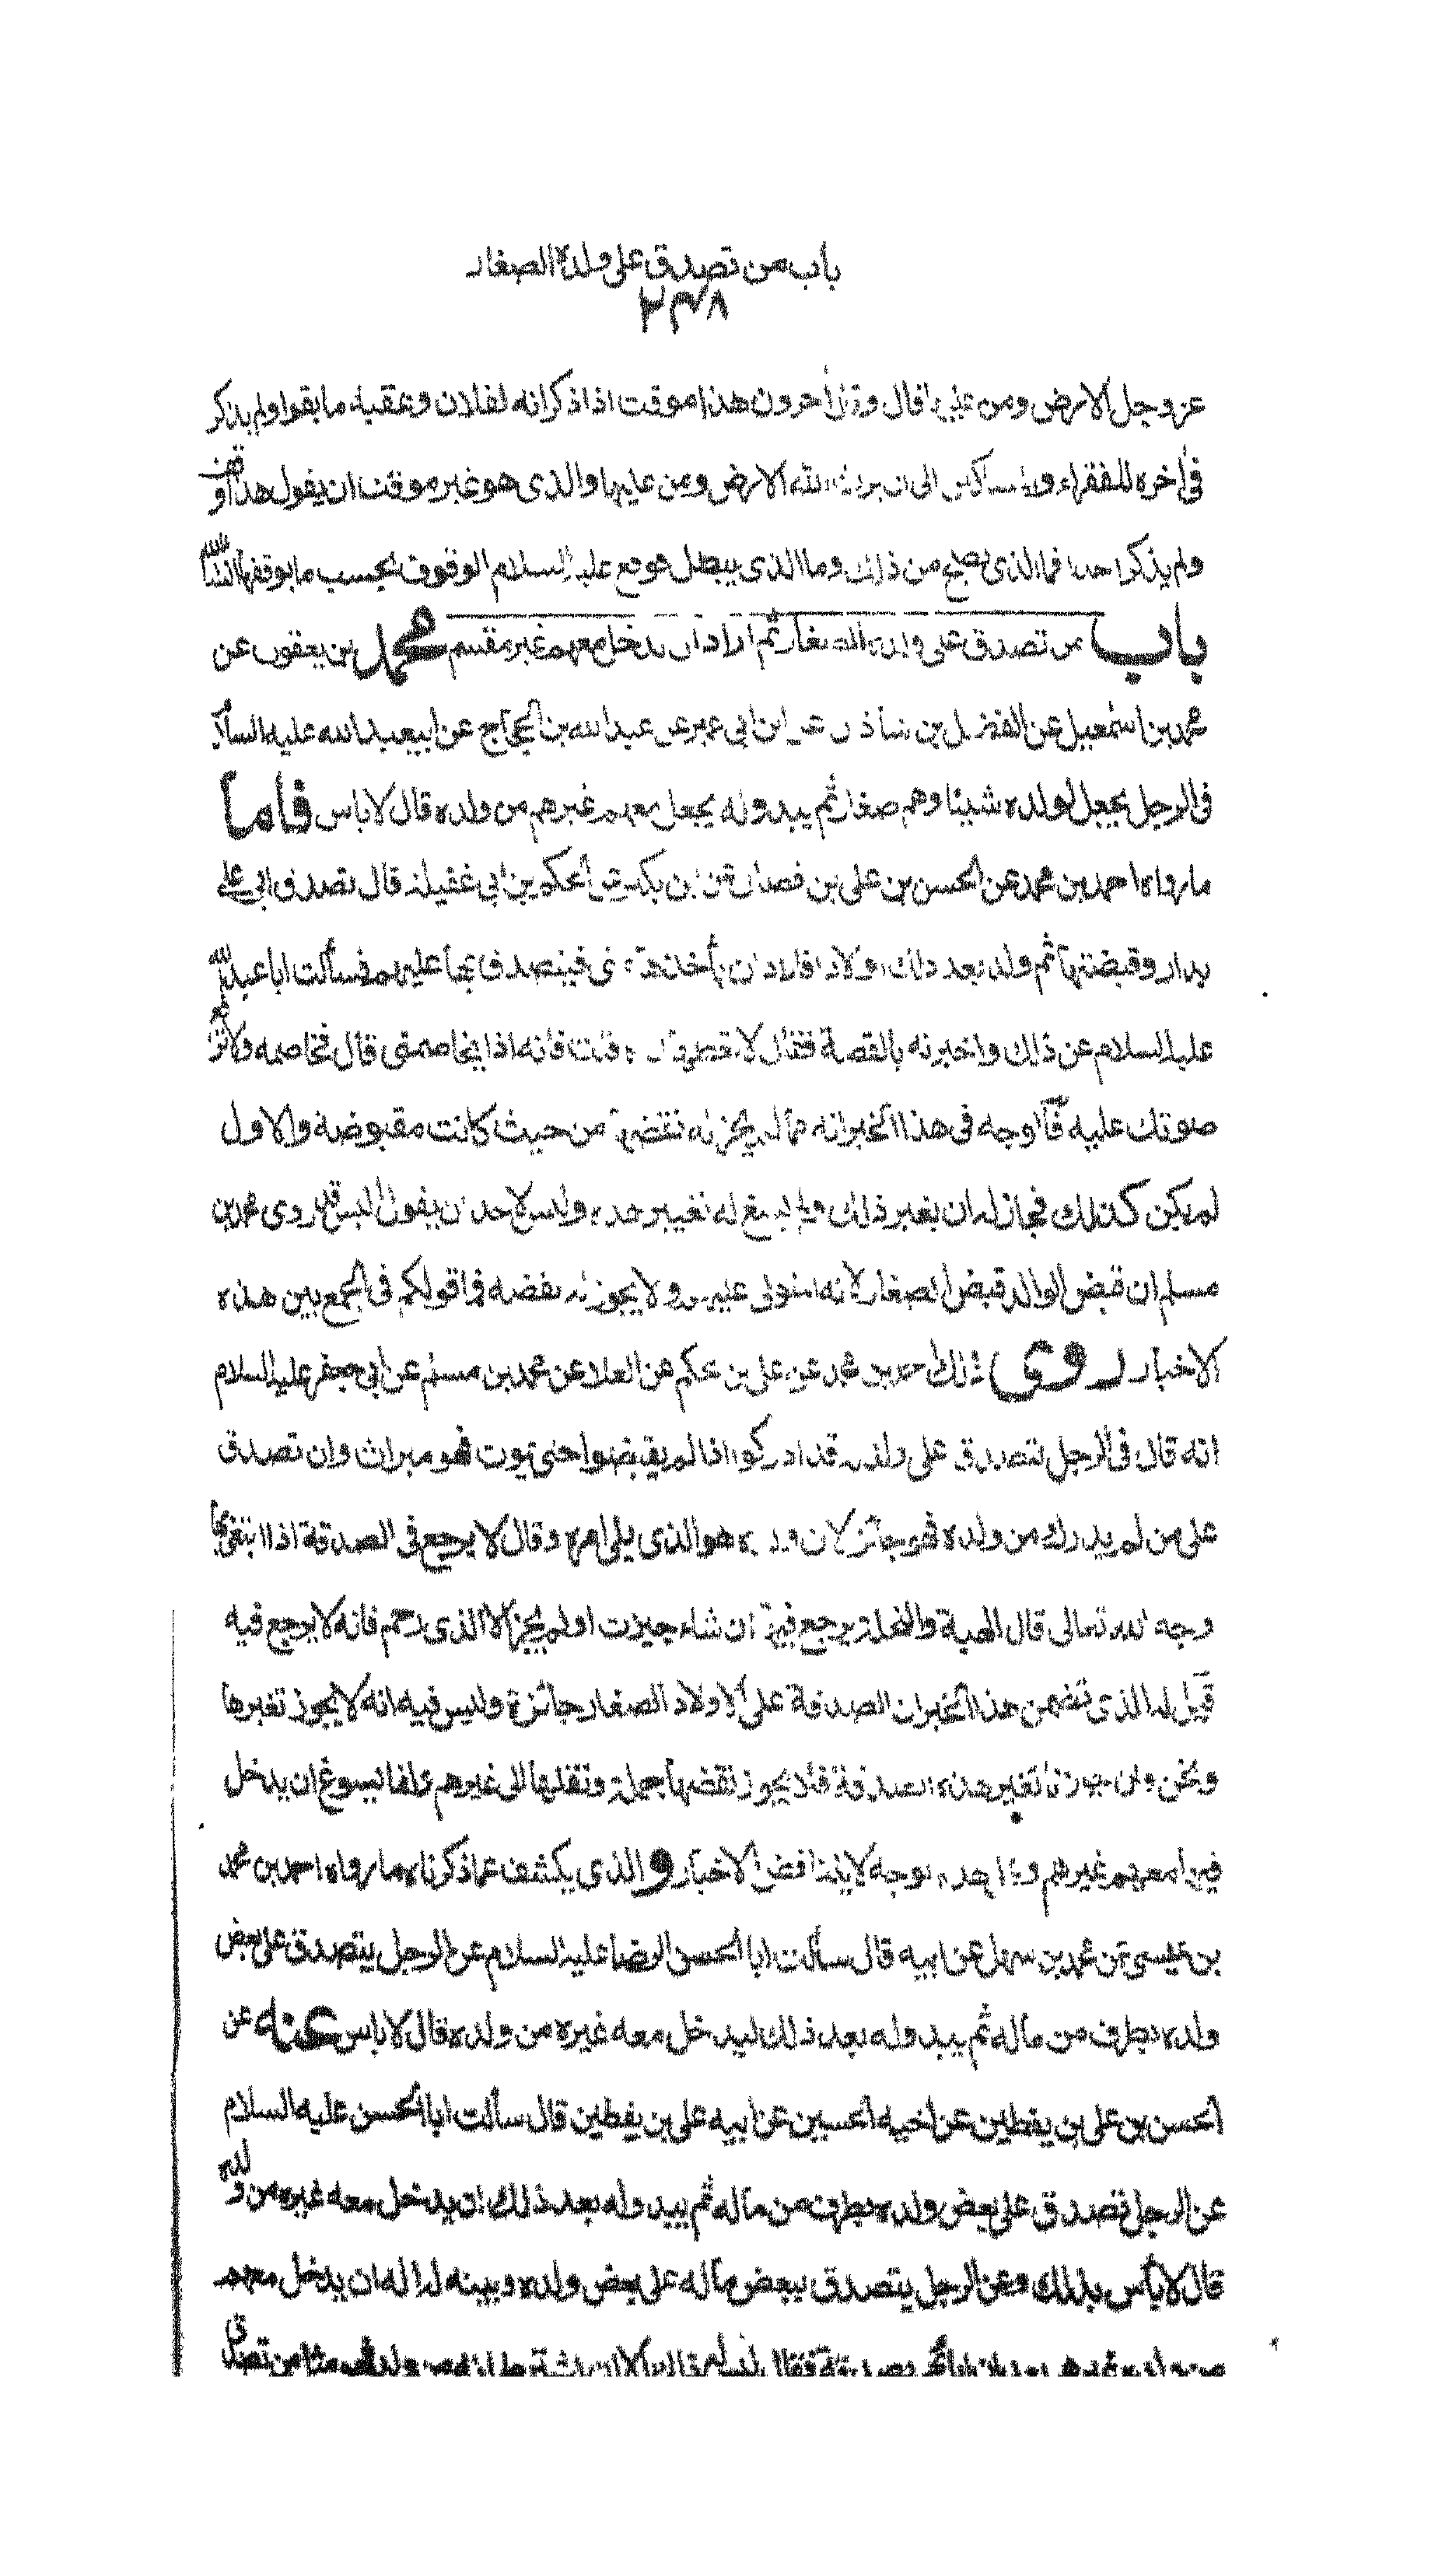 باب من تصدق على ولده الصغار
٢٣٨
عز وجل الارض ومن عليها قال وقال اخرون هذا موقت اذا ذكر انه لفلان وعقبه ما بقوا ولم يذكر
في اخره للفقراء والمساكين الى ان يرث الله الارض ومن عليها والذى هو غير موقت ان يقول هذا وقف
ولم يذكر احدا فما الذى يصلح من ذلك وما الذى يبطل فوقع عليه السلام الوقوف بحسب ما يوقفها انشاء الله
باب من تصدق على ولده الصغار ثم اراد ان يدخل معهم غيرهم محمد بن يعقوب عن
محمد بن اسمعيل عن الفضل بن شاذان عن ابن ابي عمير عن عبد الله بن الحجاج عن ابيعبد الله عليه السلام
في الرجل يجعل لولده شيئا وهم صغار ثم يبدو له يجعل معهم غيرهم من ولده قال لا باس فاما
ما رواه احمد بن محمد عن الحسن بن على بن فضال عن ابن بكير عن الحكم بن ابي عقيلة قال تصدق ابي على
بدار وقبضتها ثم ولد بعد ذلك اولاد فاراد ان يأخذها مني فيتصدق بها عليهم فسألت ابا عبد الله
عليه السلام عن ذلك واخبرته بالقصة فقال لا تعطها اياه قلت فانه اذا يخاصمنى قال فخاصمه ولا ترفع
صوتك عليه فالوجه في هذا الخبر انه انما لم يجز له نقضها من حيث كانت مقبوضة والاول
لم يكن كذلك فجاز له ان يغير ذلك ولم يسغ له تغيير هذه وليس لاحد ان يقول اليس قد روى محمد بن
مسلم ان قبض الوالد قبض الصغار لانه المتولى عليهم ولا يجوز له نقضه فما قولكم في الجمع بين هذه
الاخبار روى ذلك احمد بن محمد عن على بن الحكم عن العلا عن محمد بن مسلم عن ابي جعفر عليه السلام
انه قال في الرجل تصدق على ولد له قد ادركوا اذا لم يقبضوا حتى يموت فهو ميراث وان تصدق
على من لم يدرك من ولده فهو جائز لان والده هو الذى يلي امره وقال لا يرجع في الصدقة اذا ابتغى بها
وجه الله تعالى قال الهبة والنحلة يرجع فيها ان شاء حيزت او لم تحز الا لذى رحم فانه لا يرجع فيه
قيل له الذى تضمن هذا الخبر ان الصدقة على الاولاد الصغار جائزة وليس فيه انه لا يجوز تغيرها
ونحن وان جوزنا تغيير هذه الصدقة فلا يجوز نقضها جملة ونقلها الى غيرهم وانما يسوغ ان يدخل
فيها معهم غيرهم وعلى هذا الوجه لا يتناقض الاخبار والذى يكشف عما ذكرناه ما رواه احمد بن محمد
بن عيسى عن محمد بن سهل عن ابيه قال سألت ابا الحسن الرضا عليه السلام عن الرجل يتصدق على بعض
ولده بطرف من ماله ثم يبدو له بعد ذلك ليدخل معه غيره من ولده قال لا باس عنه عن
الحسن بن على بن يقطين عن اخيه الحسين عن ابيه على بن يقطين قال سألت ابا الحسن عليه السلام
عن الرجل تصدق على بعض ولده بطرف من ماله ثم يبدو له بعد ذلك ان يدخل معه غيره من ولده
قال لا بأس بذلك وعن الرجل يتصدق ببعض ماله على بعض ولده ويبينه له اله ان يدخل معهم